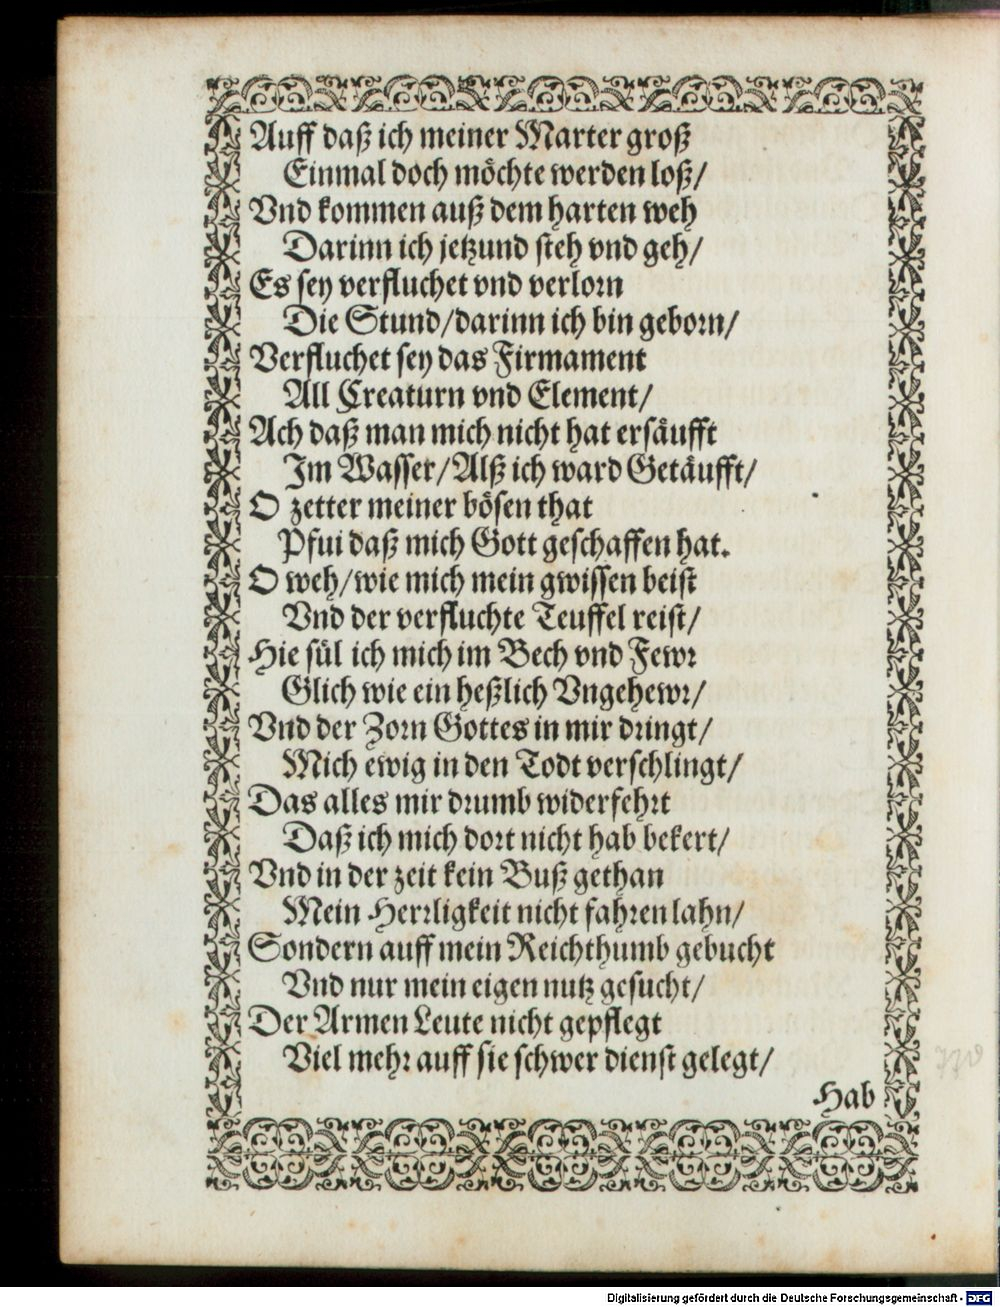 Auff daß ich meiner Marter groß
Einmal doch möchte werden loß/
Vnd kommen auß dem harten weh
Darinn ich jetzund steh vnd geh/
Es sey verfluchet vnd verlorn
Die Stund/darinn ich bin geborn/
Verfluchet sey das Firmament
All Creaturn vnd Element/
Ach daß man mich nicht hat ersäufft
Im Wasser/Alß ich ward Getäufft/
O zetter meiner bösen that
Pfui daß mich Gott geschaffen hat.
O weh/wie mich mein gwissen beist
Vnd der verfluchte Teuffel reist/
Hie fül ich mich im Bech vnd Fewr
Glich wie ein heßlich Vngehewr/
Vnd der Zorn Gottes in mir dringt/
Mich ewig in den Todt verschlingt/
Das alles mir drumb widerfehrt
Daß ich mich dort nicht hab bekert/
Vnd in der zeit kein Buß gethan
Mein Herrligkeit nicht fahren lahn/
Sondern auff mein Reichthumb gebucht
Vnd nur mein eigen nutz gesucht/
Der Armen Leute nicht gepflegt
Viel mehr auff sie schwer dienst gelegt/
Hab
Digitalisierung gefördert durch die Deutsche Forschungsgemeinschaft - DFG